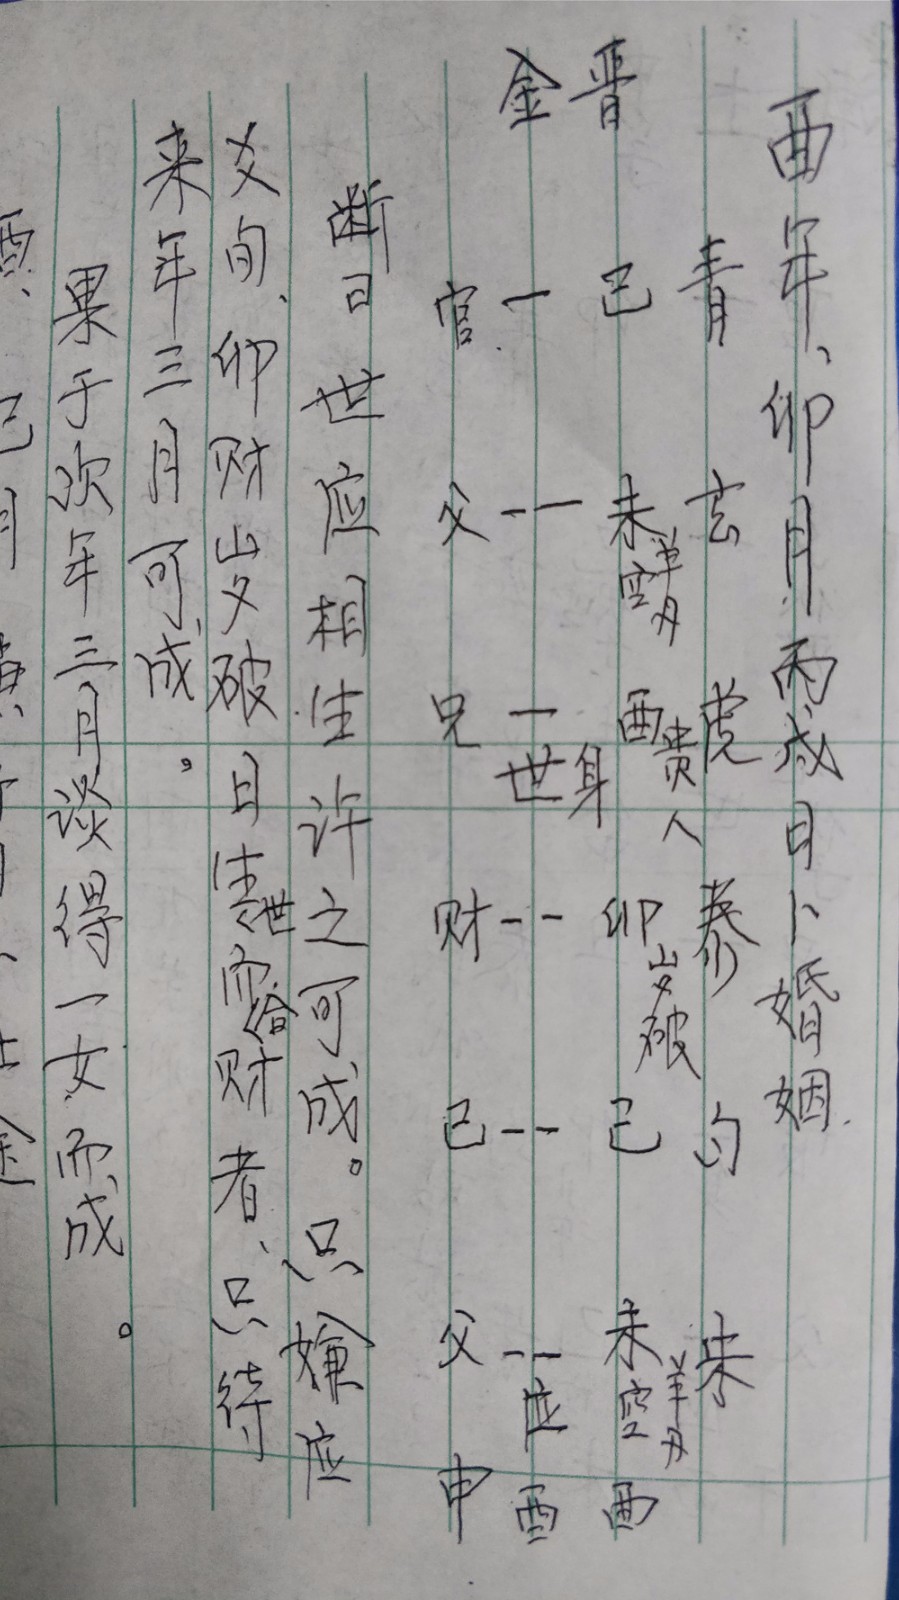 酉年、卯月丙戌日卜婚姻.
青 玄 虎 泰 勾 朱
晋 巳 未 空 羊刃 酉 贵人 身 卯 岁破 巳 未 空 羊刃 酉
金 一 -- 一 世 -- -- -- 应 酉
官 父 兄 财 巳 父 申
断曰世应相生许之可成。只嫌应
爻旬、卯财岁破日生世而合财者、只待
来年三月可成。
果于次年三月谈得一女而成。